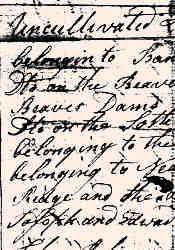 Uncultivated
belonging to Ban
Do on the Beaver
Beaver Damd
Do on the
belonging to the
belonging to
Ridge and the
Joseph and Edwar